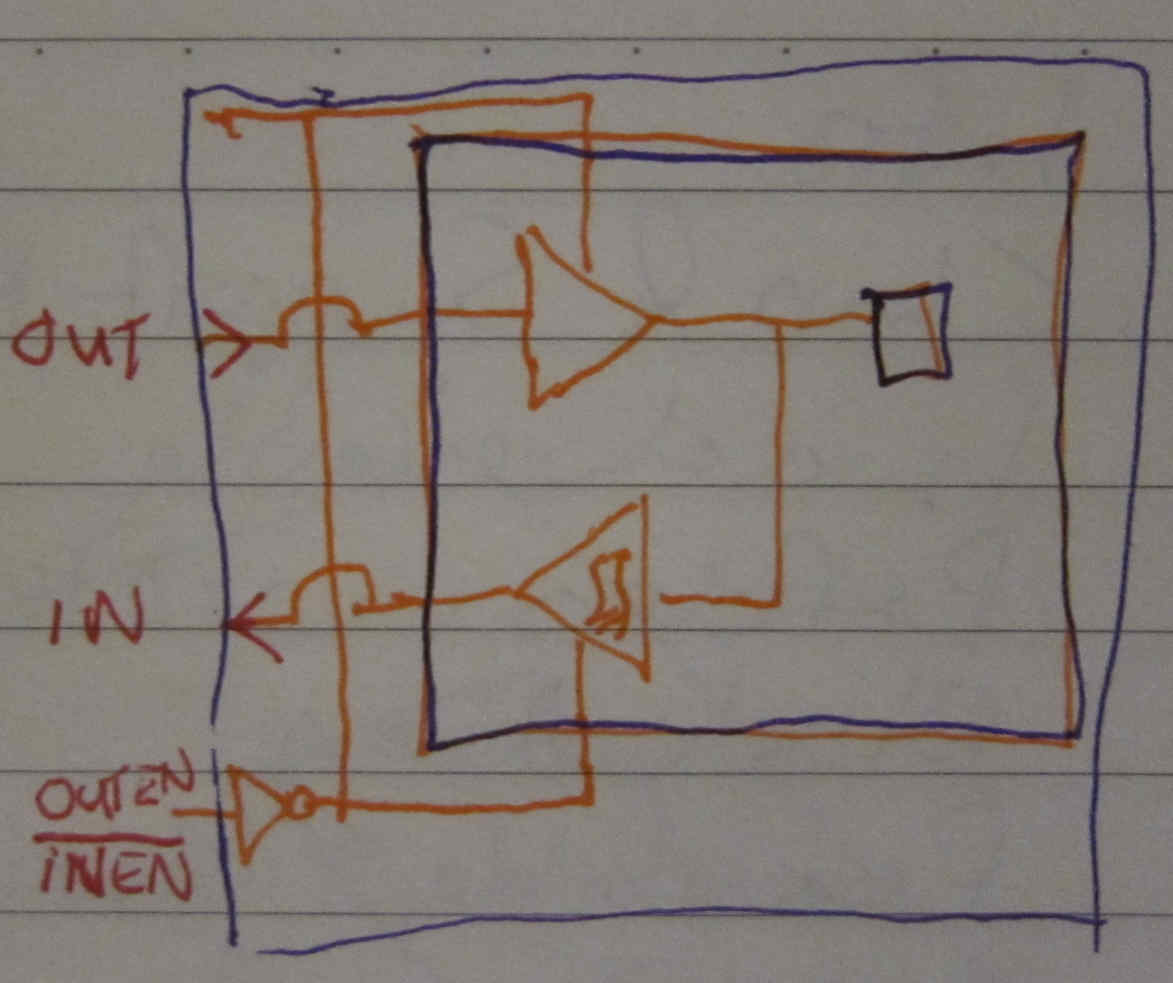 OUT
IN
OUTEN
INEN